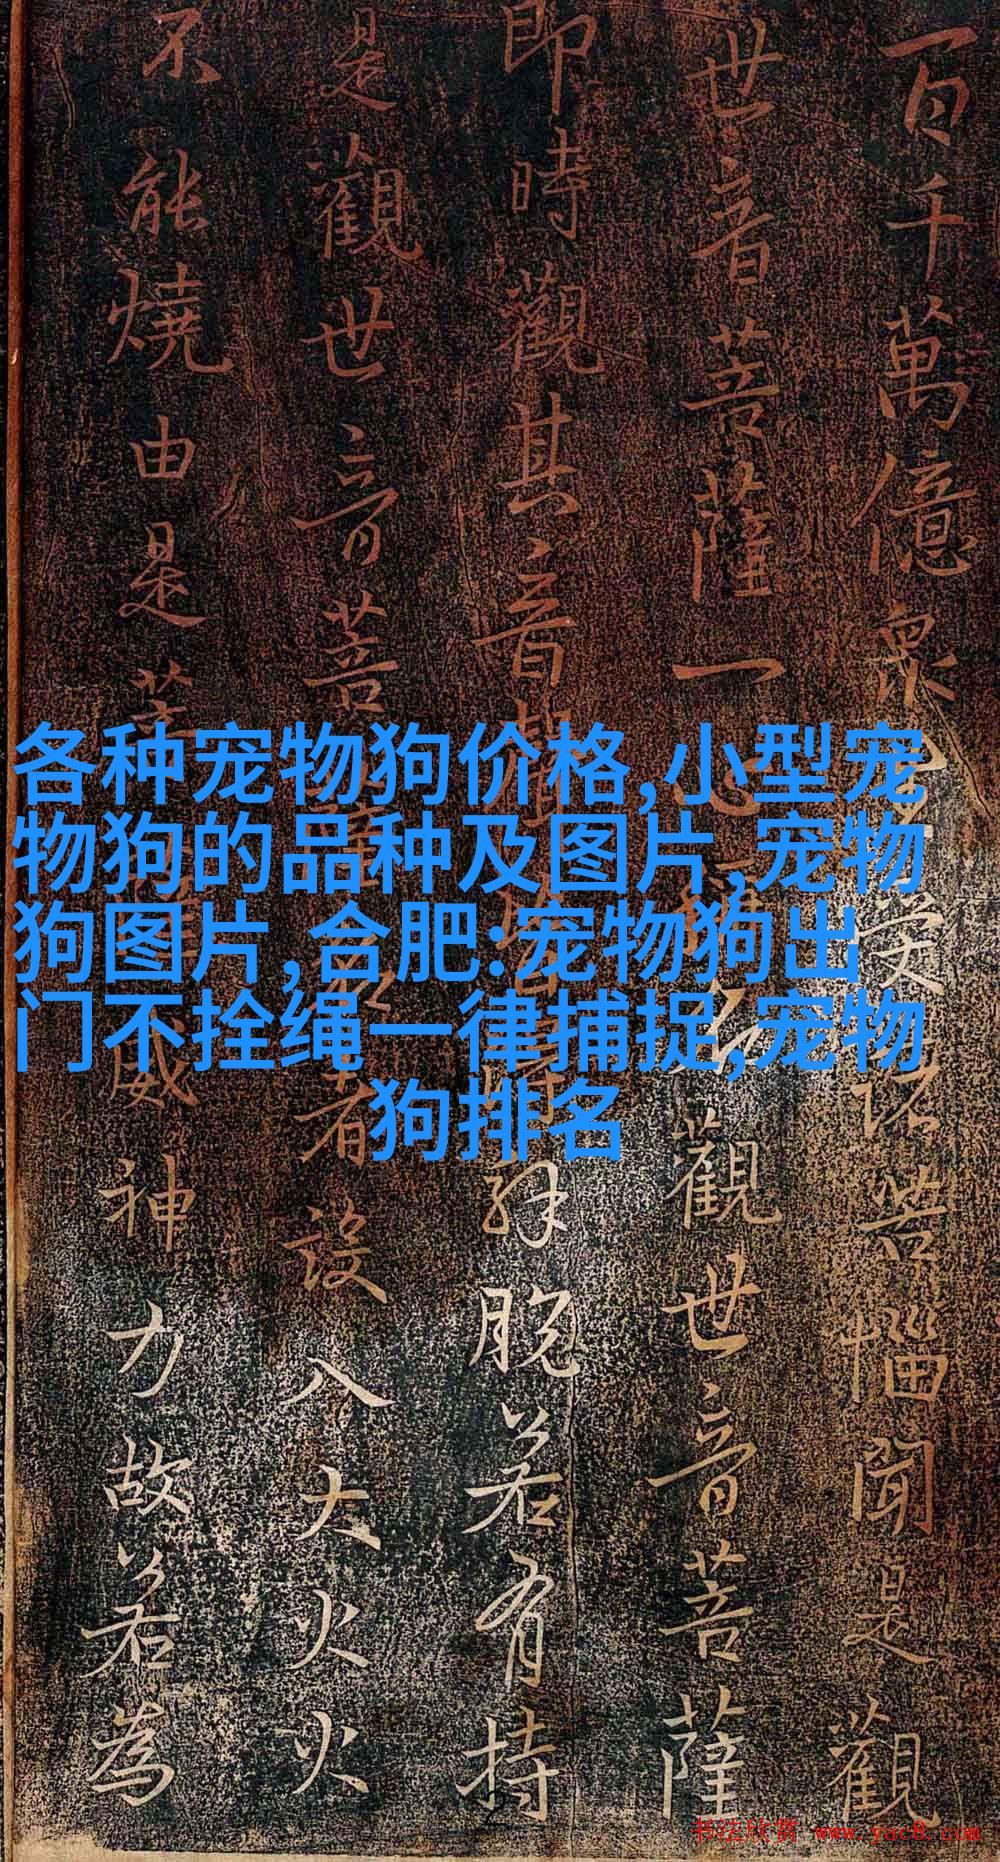 百千萬億眾受諸苦惱聞是觀
世音菩薩一心稱名觀世音菩薩
即時觀其音解脱若有持
是觀世音菩者設入大火火
不能燒由是菩威神力故若為
各种宠物狗价格,小型宠
物狗的品种及图片,宠物
狗图片,合肥:宠物狗出
门不拴绳一律捕捉,宠物
狗排名
书法欣赏 www.yac8.com